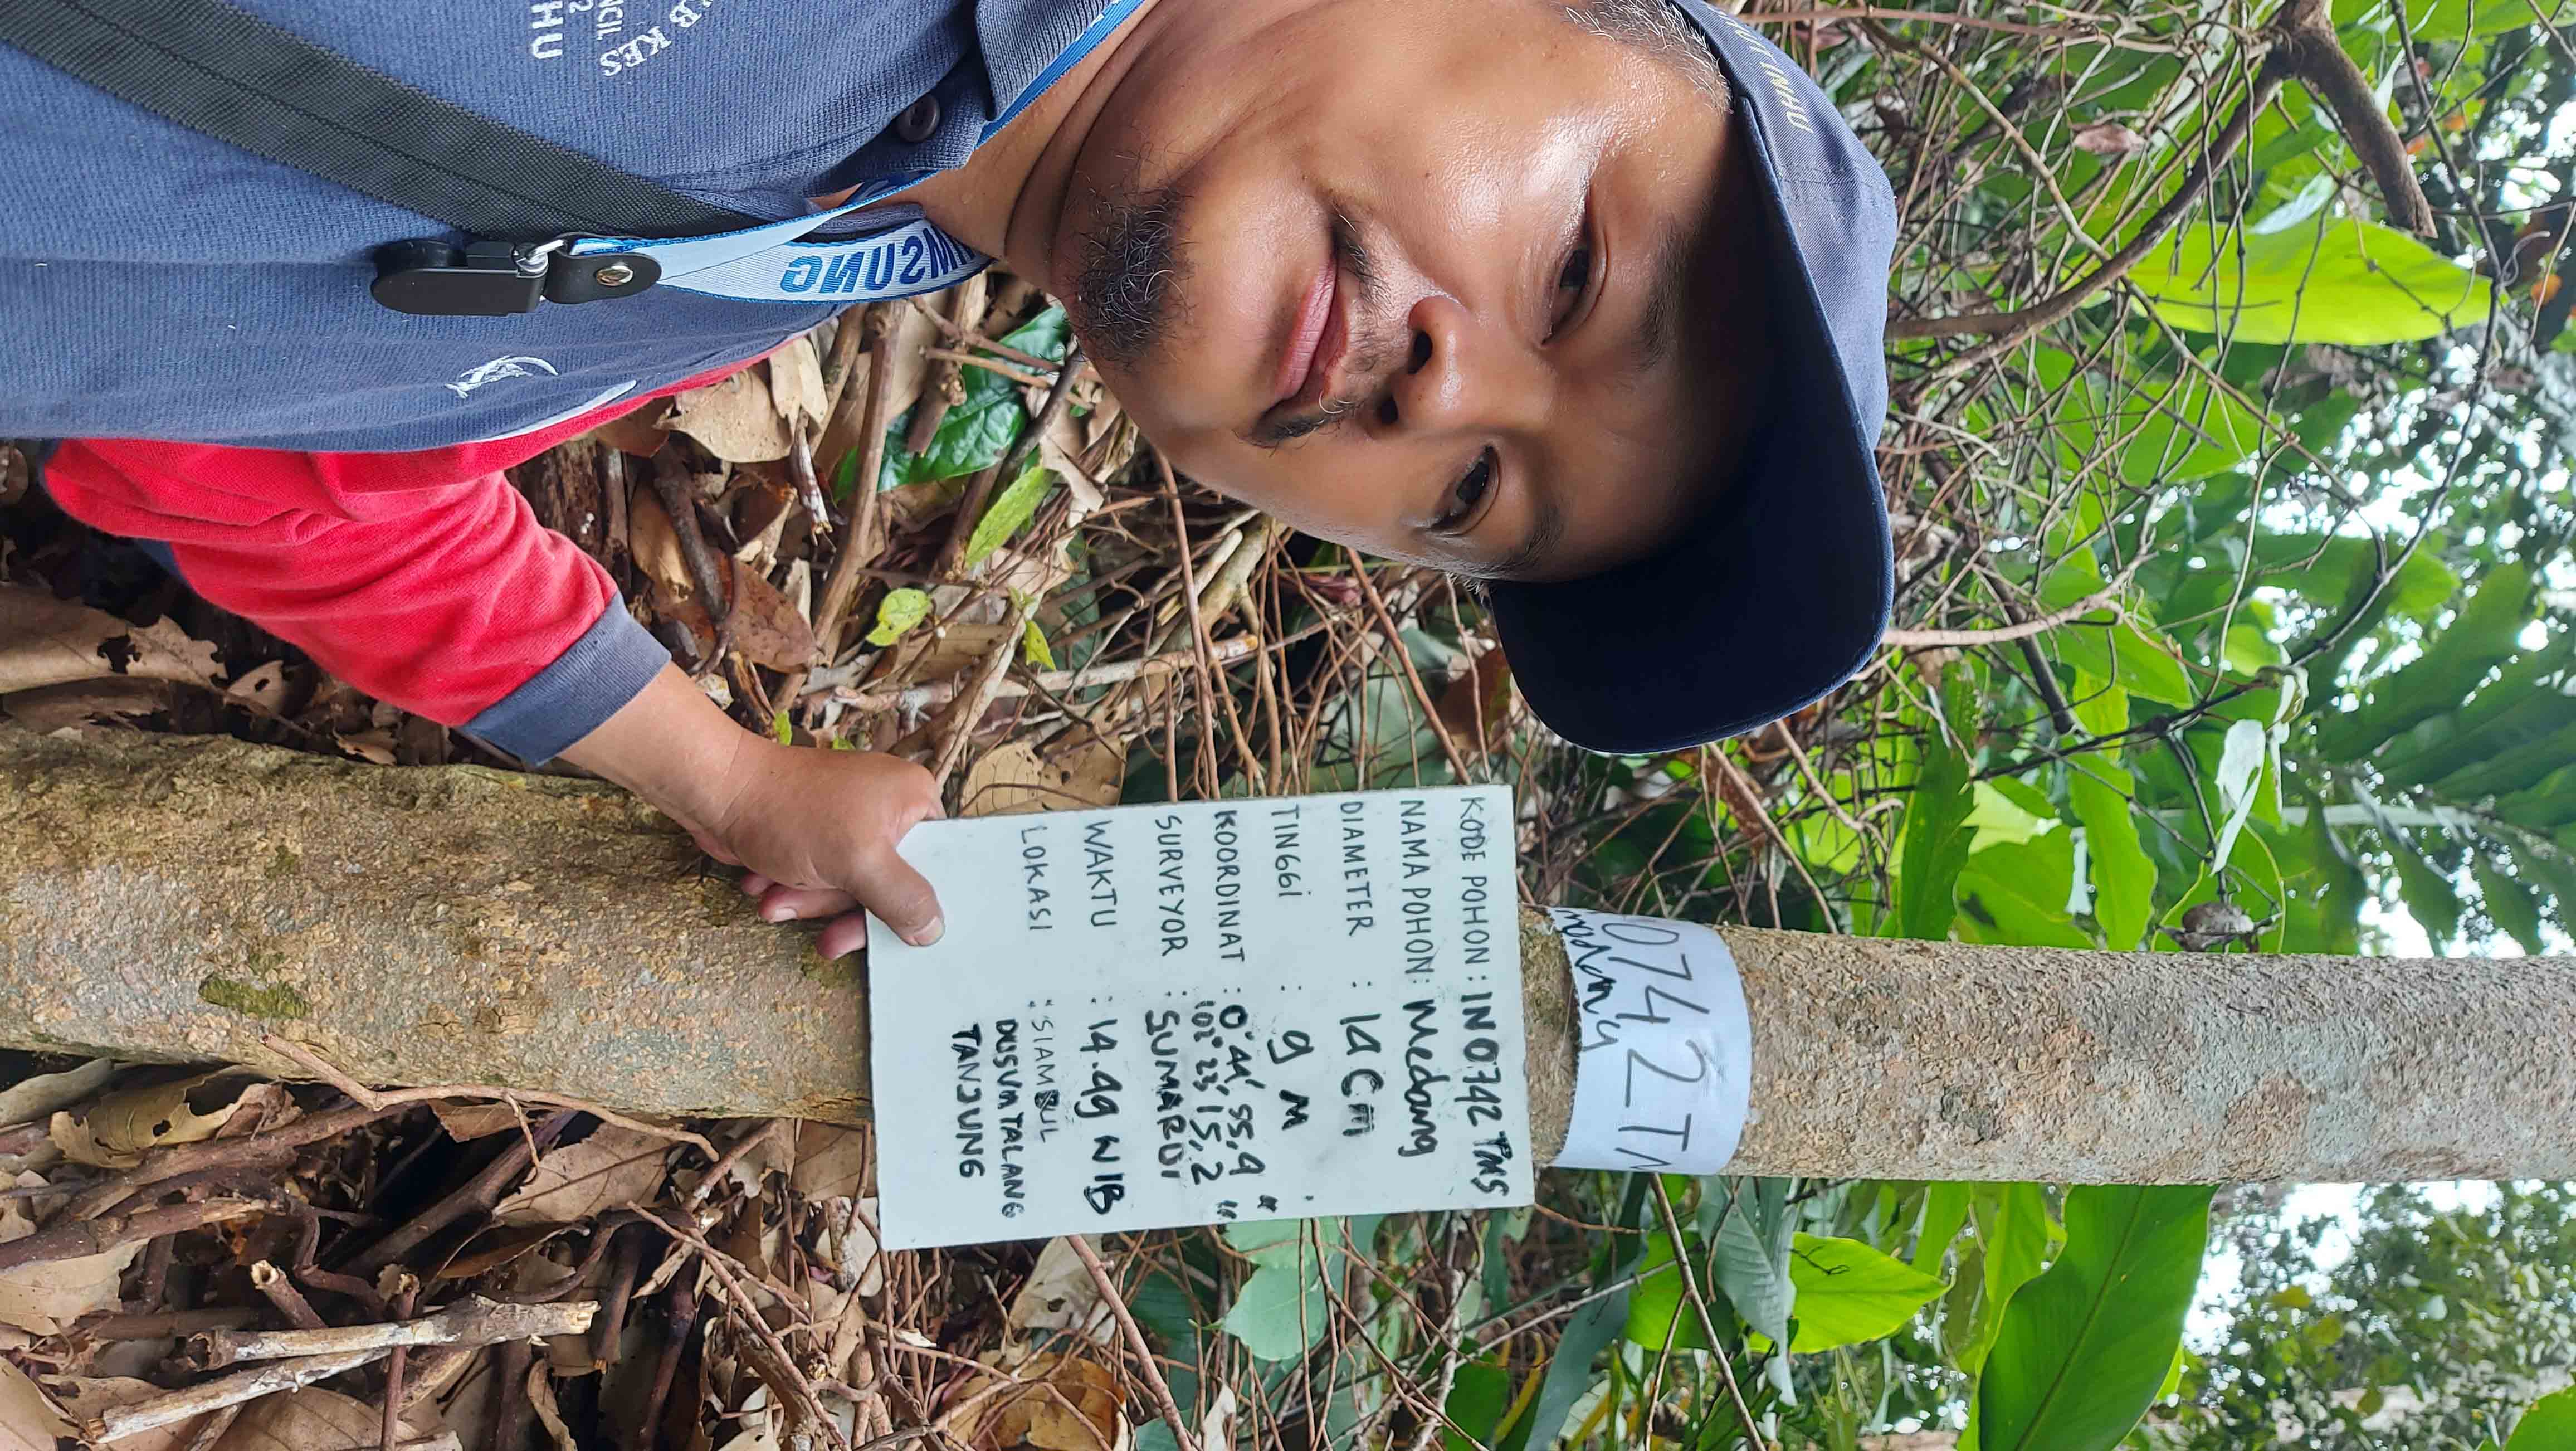 KODE POHON : IN0742 TMS
NAMA POHON : Medang
DIAMETER : 14 Cm
TINGGI : 9 M
KOORDINAT : 0° 44' 55,9 "
102° 23' 15,2 "
SURVEYOR : SUMARDI
WAKTU : 14.49 WIB
LOKASI : SIAMBUL
DUSUN TALANG
TANJUNG
0742 TM
Medang
SAMSUNG
KES
NCIL
HU
INHU